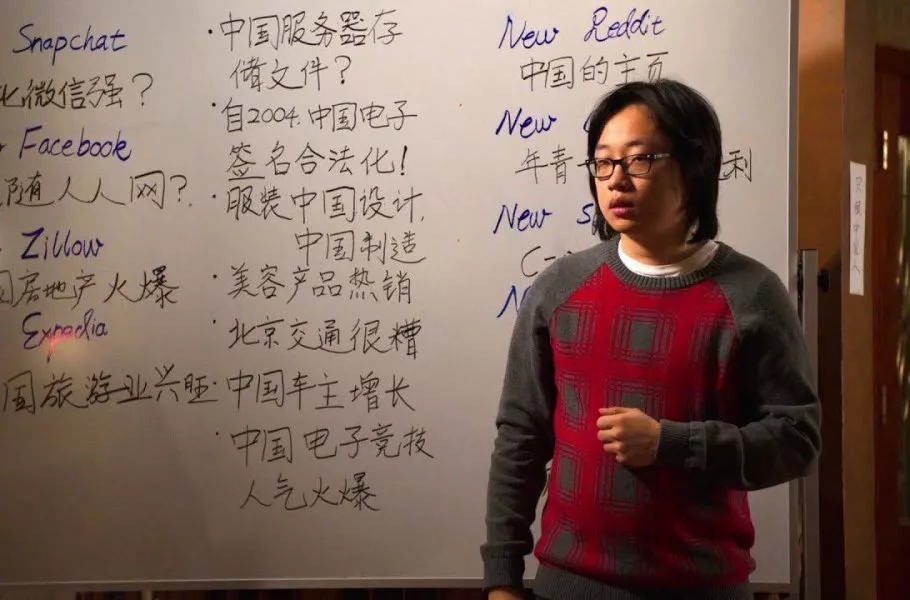 Snapchat
化微信强？
Facebook
随人人网？
Zillow
国房地产火爆
Expedia
国旅游业兴旺
·中国服务器存
储文件？
·自2004.中国电子
签名合法化！
·服装中国设计,
中国制造
·美容产品热销
·北京交通很糟
·中国车主增长
·中国电子竞技
人气火爆
New Reddit
中国的主页
New
年青
利
New
C-